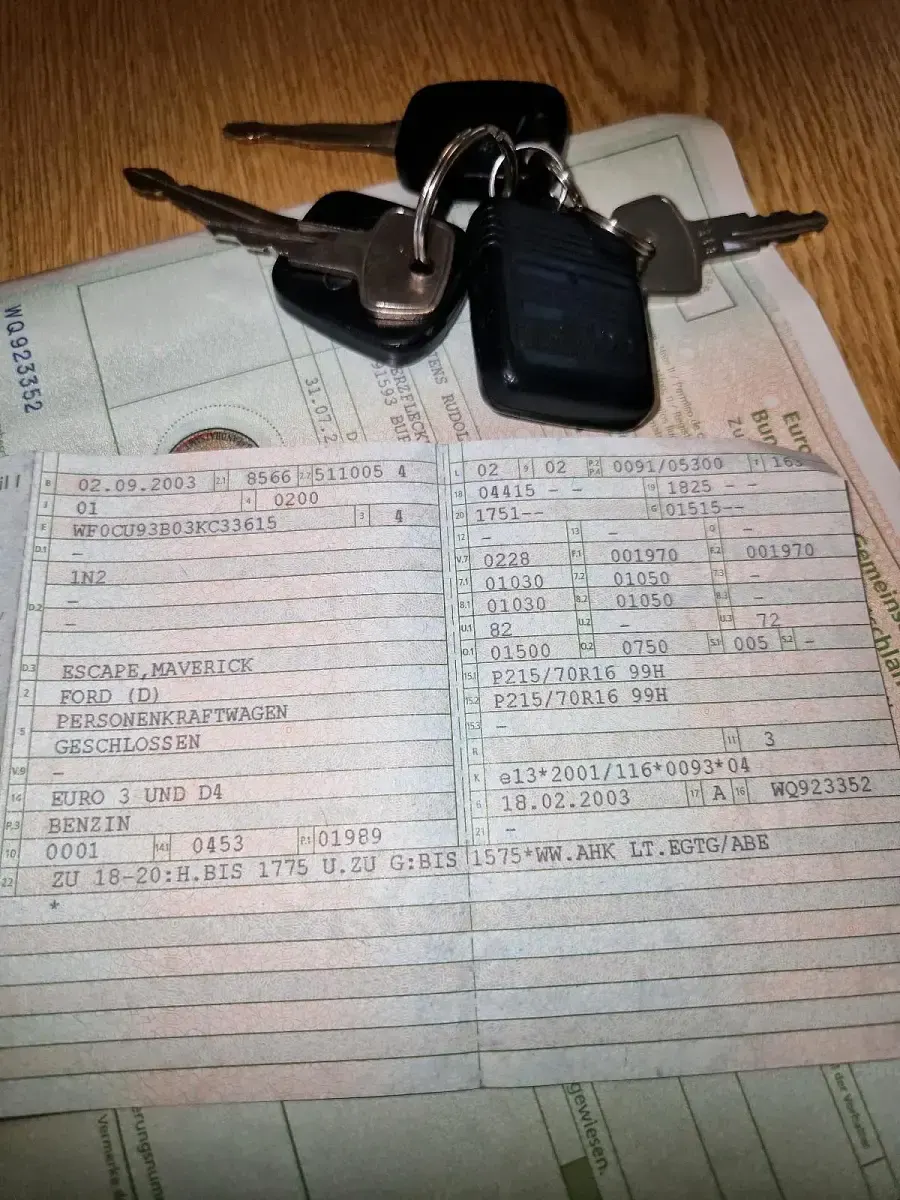 WQ923352
31.07.2
TENS RUDOL
ERZFLECK
91593 BUR
Euro
Bun
Zu
B 02.09.2003 2.1 8566 2.2 511005 4
J 01 4 0200
E WF0CU93B03KC33615 3 4
D.1 –
1N2
D.2 –
–
D.3 ESCAPE,MAVERICK
2 FORD (D)
5 PERSONENKRAFTWAGEN
GESCHLOSSEN
V.9 –
14 EURO 3 UND D4
P.3 BENZIN
10 0001 14.1 0453 P.1 01989
L 02 9 02 P.2 P.4 0091/05300 T 163
18 04415 – – 19 1825 – –
20 1751-- G 01515--
12 – 13 – Q –
V.7 0228 F.1 001970 F.2 001970
7.1 01030 7.2 01050 7.3 –
8.1 01030 8.2 01050 8.3 –
U.1 82 U.2 – U.3 72
O.1 01500 O.2 0750 S.1 005 S.2 –
15.1 P215/70R16 99H
15.2 P215/70R16 99H
15.3 –
R 11 3
K e13*2001/116*0093*04
6 18.02.2003 17 A 16 WQ923352
21 –
22 ZU 18-20:H.BIS 1775 U.ZU G:BIS 1575*WW.AHK LT.EGTG/ABE
*
Gemeins
schlan
gewiesen.
erungsnum
Vermerke de
n der Vorhalter